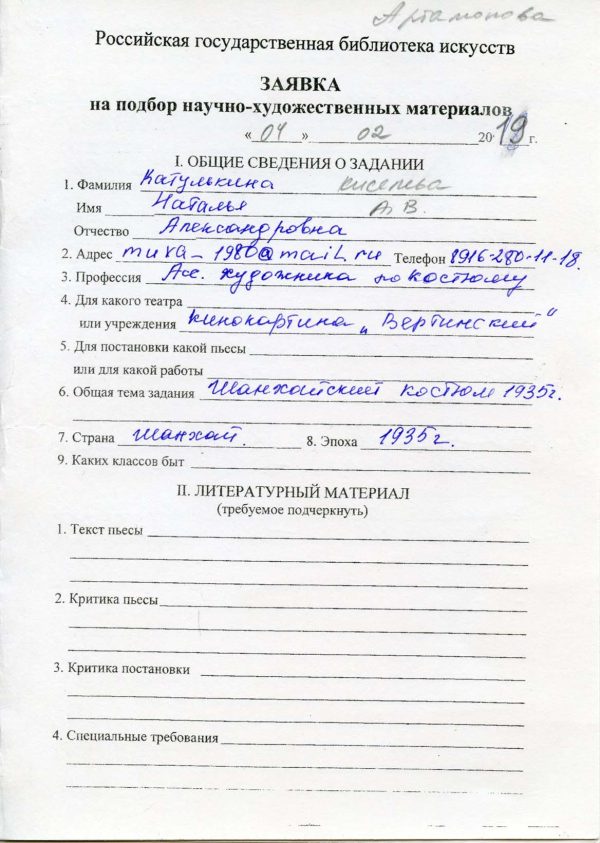 Артамонова
Российская государственная библиотека искусств
ЗАЯВКА
на подбор научно-художественных материалов
« 04 » 02 2019 г.
I. ОБЩИЕ СВЕДЕНИЯ О ЗАДАНИИ
1. Фамилия Катулькина Киселева
Имя Наталья А.В.
Отчество Александровна
2. Адрес muxa-1980@mail.ru Телефон 8916-280-11-18.
3. Профессия Асс. художника по костюму
4. Для какого театра
или учреждения кинокартина „Вертинский"
5. Для постановки какой пьесы
или для какой работы
6. Общая тема задания Шанхайский костюм 1935г.
7. Страна Шанхай. 8. Эпоха 1935г.
9. Каких классов быт
II. ЛИТЕРАТУРНЫЙ МАТЕРИАЛ
(требуемое подчеркнуть)
1. Текст пьесы
2. Критика пьесы
3. Критика постановки
4. Специальные требования